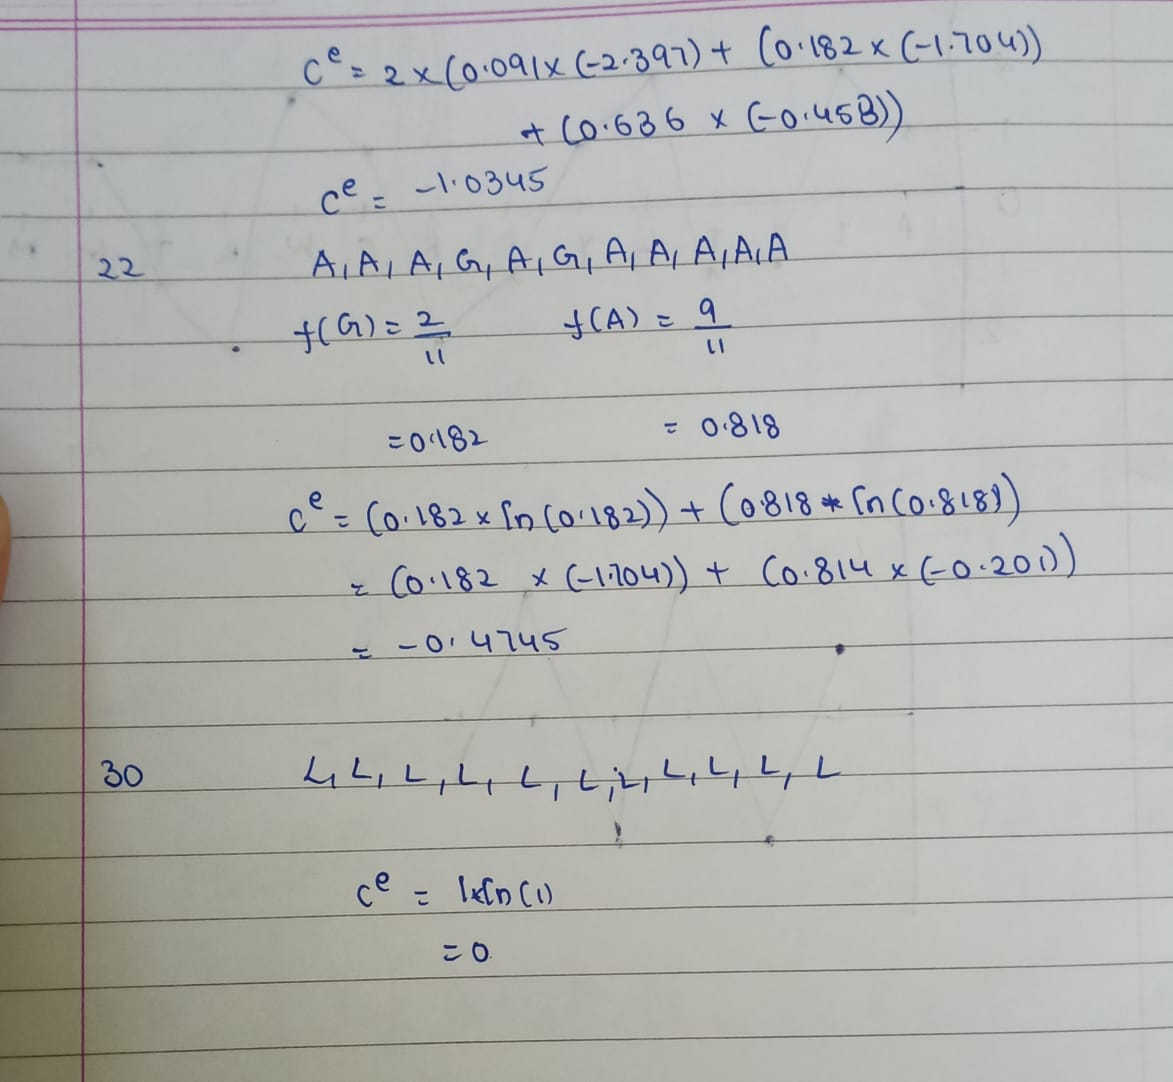 C^e = 2 × (0.091 × (-2.397) + (0.182 × (-1.704))
+ (0.636 × (-0.453))
C^e = -1.0345
22 A, A, A, G, A, G, A, A, A, A, A
f(G) = 2/11 f(A) = 9/11
= 0.182 = 0.818
C^e = (0.182 × ln(0.182)) + (0.818 * ln(0.818))
= (0.182 × (-1.704)) + (0.814 × (-0.201))
= -0.4745
30 L, L, L, L, L, L, L, L, L, L, L
C^e = 1×ln(1)
= 0.